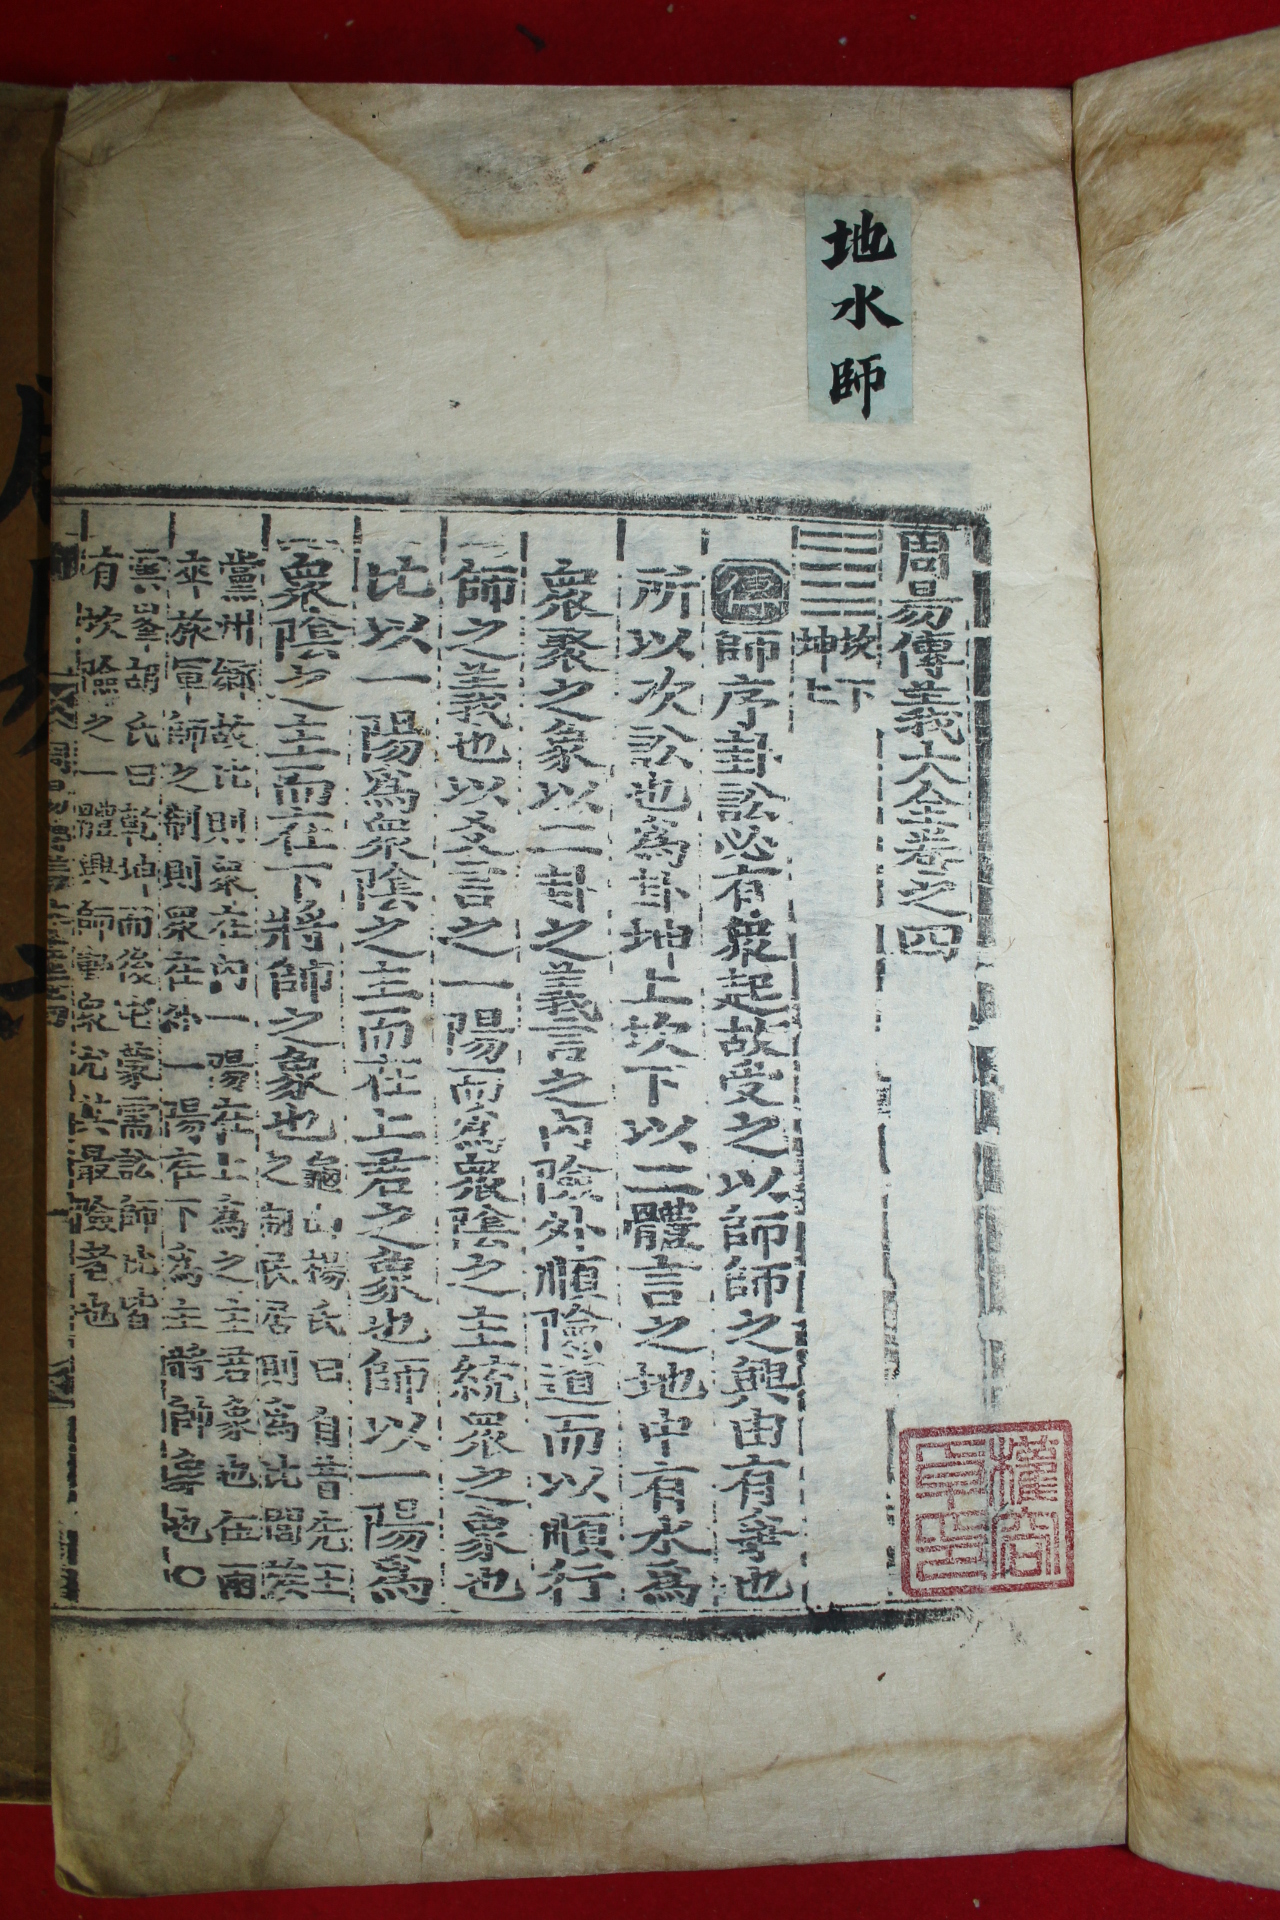 地水師
周易傳義大全卷之四
坎下
坤上
傳師序卦訟必有衆起故受之以師師之興由有爭也
所以次訟也爲卦坤上坎下以二體言之地中有水爲
衆聚之象以二卦之義言之內險外順險道而以順行
師之義也以爻言之一陽而爲衆陰之主統衆之象也
比以一陽爲衆陰之主而在上君之象也師以一陽爲
衆陰之主而在下將帥之象也
龜山楊氏曰自昔先王
之制民居則爲比閭族
黨州鄉故比則衆在內一陽在上爲之主君象也在兩
卒旅軍師之制則衆在外一陽在下爲主將帥象也○
雲峯胡氏曰乾坤而後屯蒙需訟師比皆
有坎險之一體興師動衆尤其最險者也